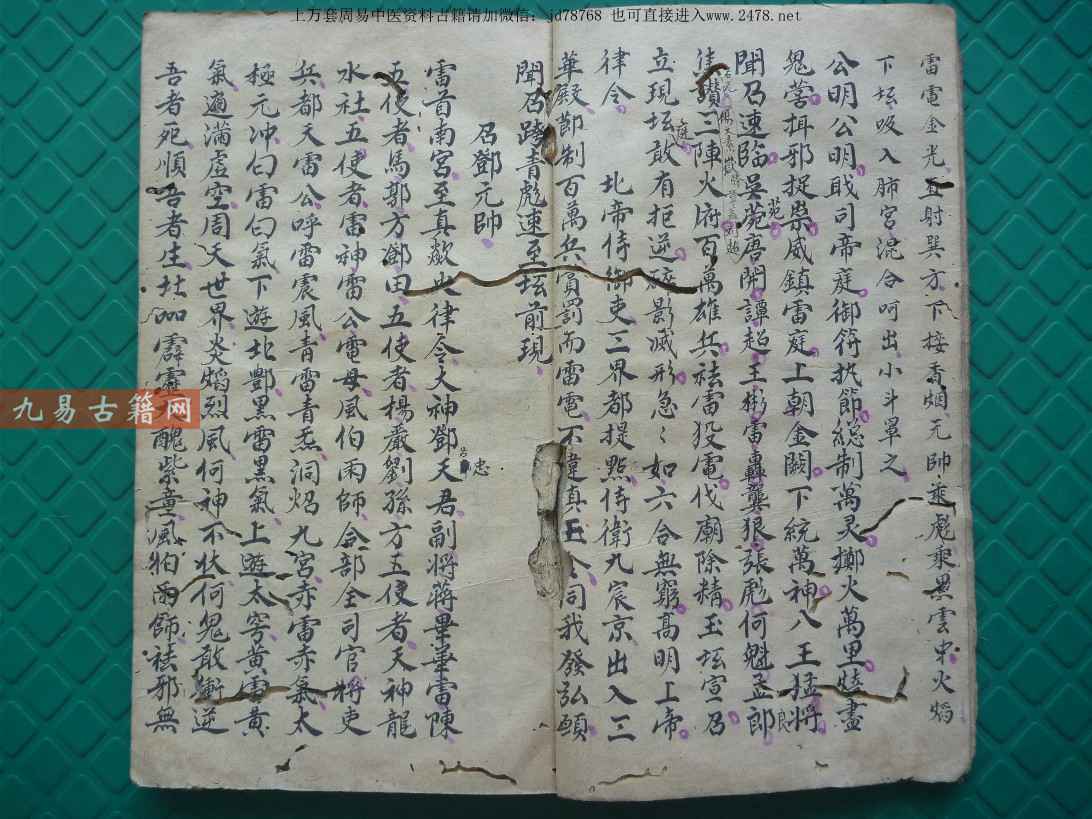 上万套周易中医资料古籍请加微信：jd78768 也可直接进入www.2478.net
雷電金光直射巽方下接香烟元帥乘彪乘黑雲中火焰
下坛吸入肺宮混合呵出小斗罩之
公明公明戢司帝庭御符执節総制萬灵擲火萬里 盡
鬼營揖邪捉祟威鎮雷庭上朝金闕下統萬神八王猛將
聞召速臨吳范唐開譚超王彬雷轟龔狠張彪何魁孟郎
讚三陣火府百萬雄兵祛雷投電伐廟除精玉坛宣召
立現坛庭敢有拒逆 影滅形急〻如六合無窮高明上帝
律令 北帝侍御吏三界都提點侍衛九宸京出入三
華殿節制百萬兵賞罰而雷電不違真王令同我發弘願
聞召踏青彪速至坛前現
召鄧元帥
雷首南宮至真歘火律令大神鄧天君忠副將蔣畢華雷陳
五使者馬郭方鄧田五使者楊嚴劉孫方五使者天神龍
水社五使者雷神雷公電母風伯雨師合部全司官將吏
兵都天雷公呼雷震風青雷青炁洞焰九宮赤雷赤氣太
極元冲白雷白氣下遊北酆黑雷黑氣上遊太穹黃雷黃
氣遍滿虛空周天世界炎焰烈風何神不伏何鬼敢衝逆
吾者死順吾者生 霹靂 醜紫童風伯雨師祛邪無
九易古籍网